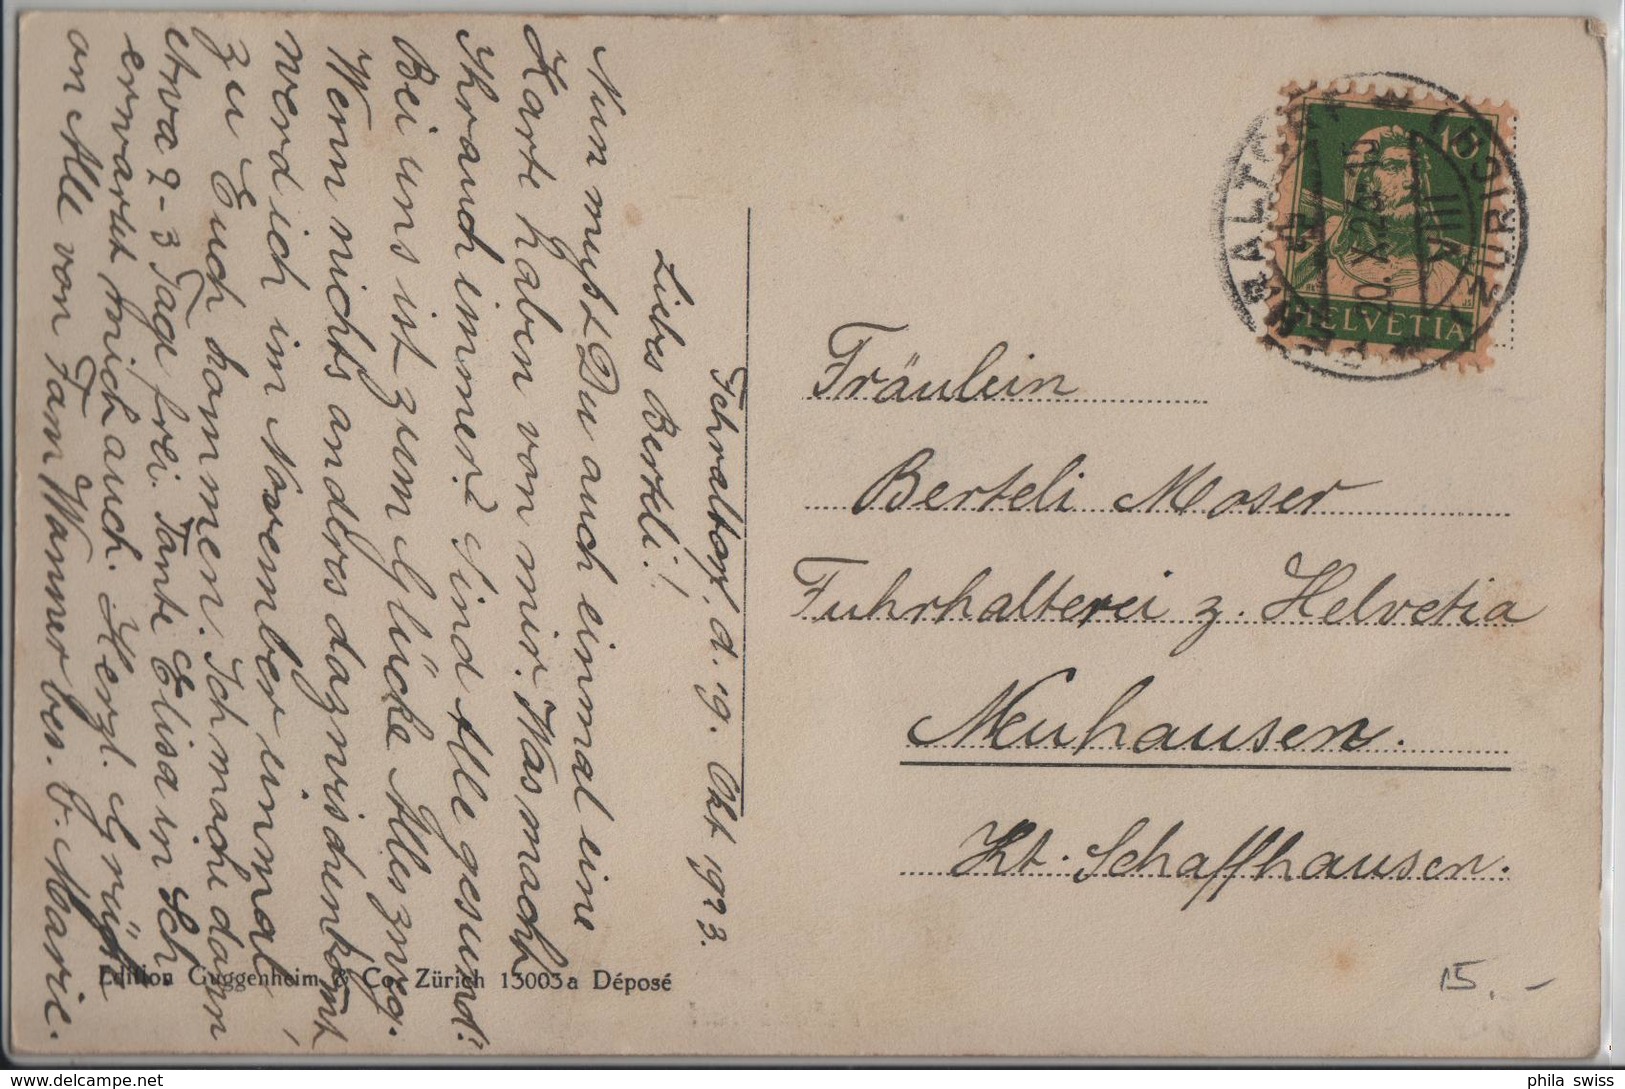 Fehraltorf, d. 19. Okt 1923.
Liebes Berteli!
Nun mußt Du auch einmal eine
Karte haben von mir. Was macht
Ihr auch immer? Sind Alle gesund?
Bei uns ist zum Glücke Alles zweg.
Wenn nichts andres dazwischen kommt
werd ich im November einmal
zu Euch kommen. Ich mache dann
etwa 2-3 Tage frei. Tante Elisa in Sch
erwartet mich auch. Herzl. Grüße
an Alle von Fam Wanner bes. v. Marie.
Edition Guggenheim & Co., Zürich 13003 a Déposé
15
HELVETIA
FEHRALTORF
(ZÜRICH)
20. X. 23
VIII
Fräulein
Berteli Moser
Fuhrhalterei z. Helvetia
Neuhausen.
Kt. Schaffhausen.
15.-
phila swiss